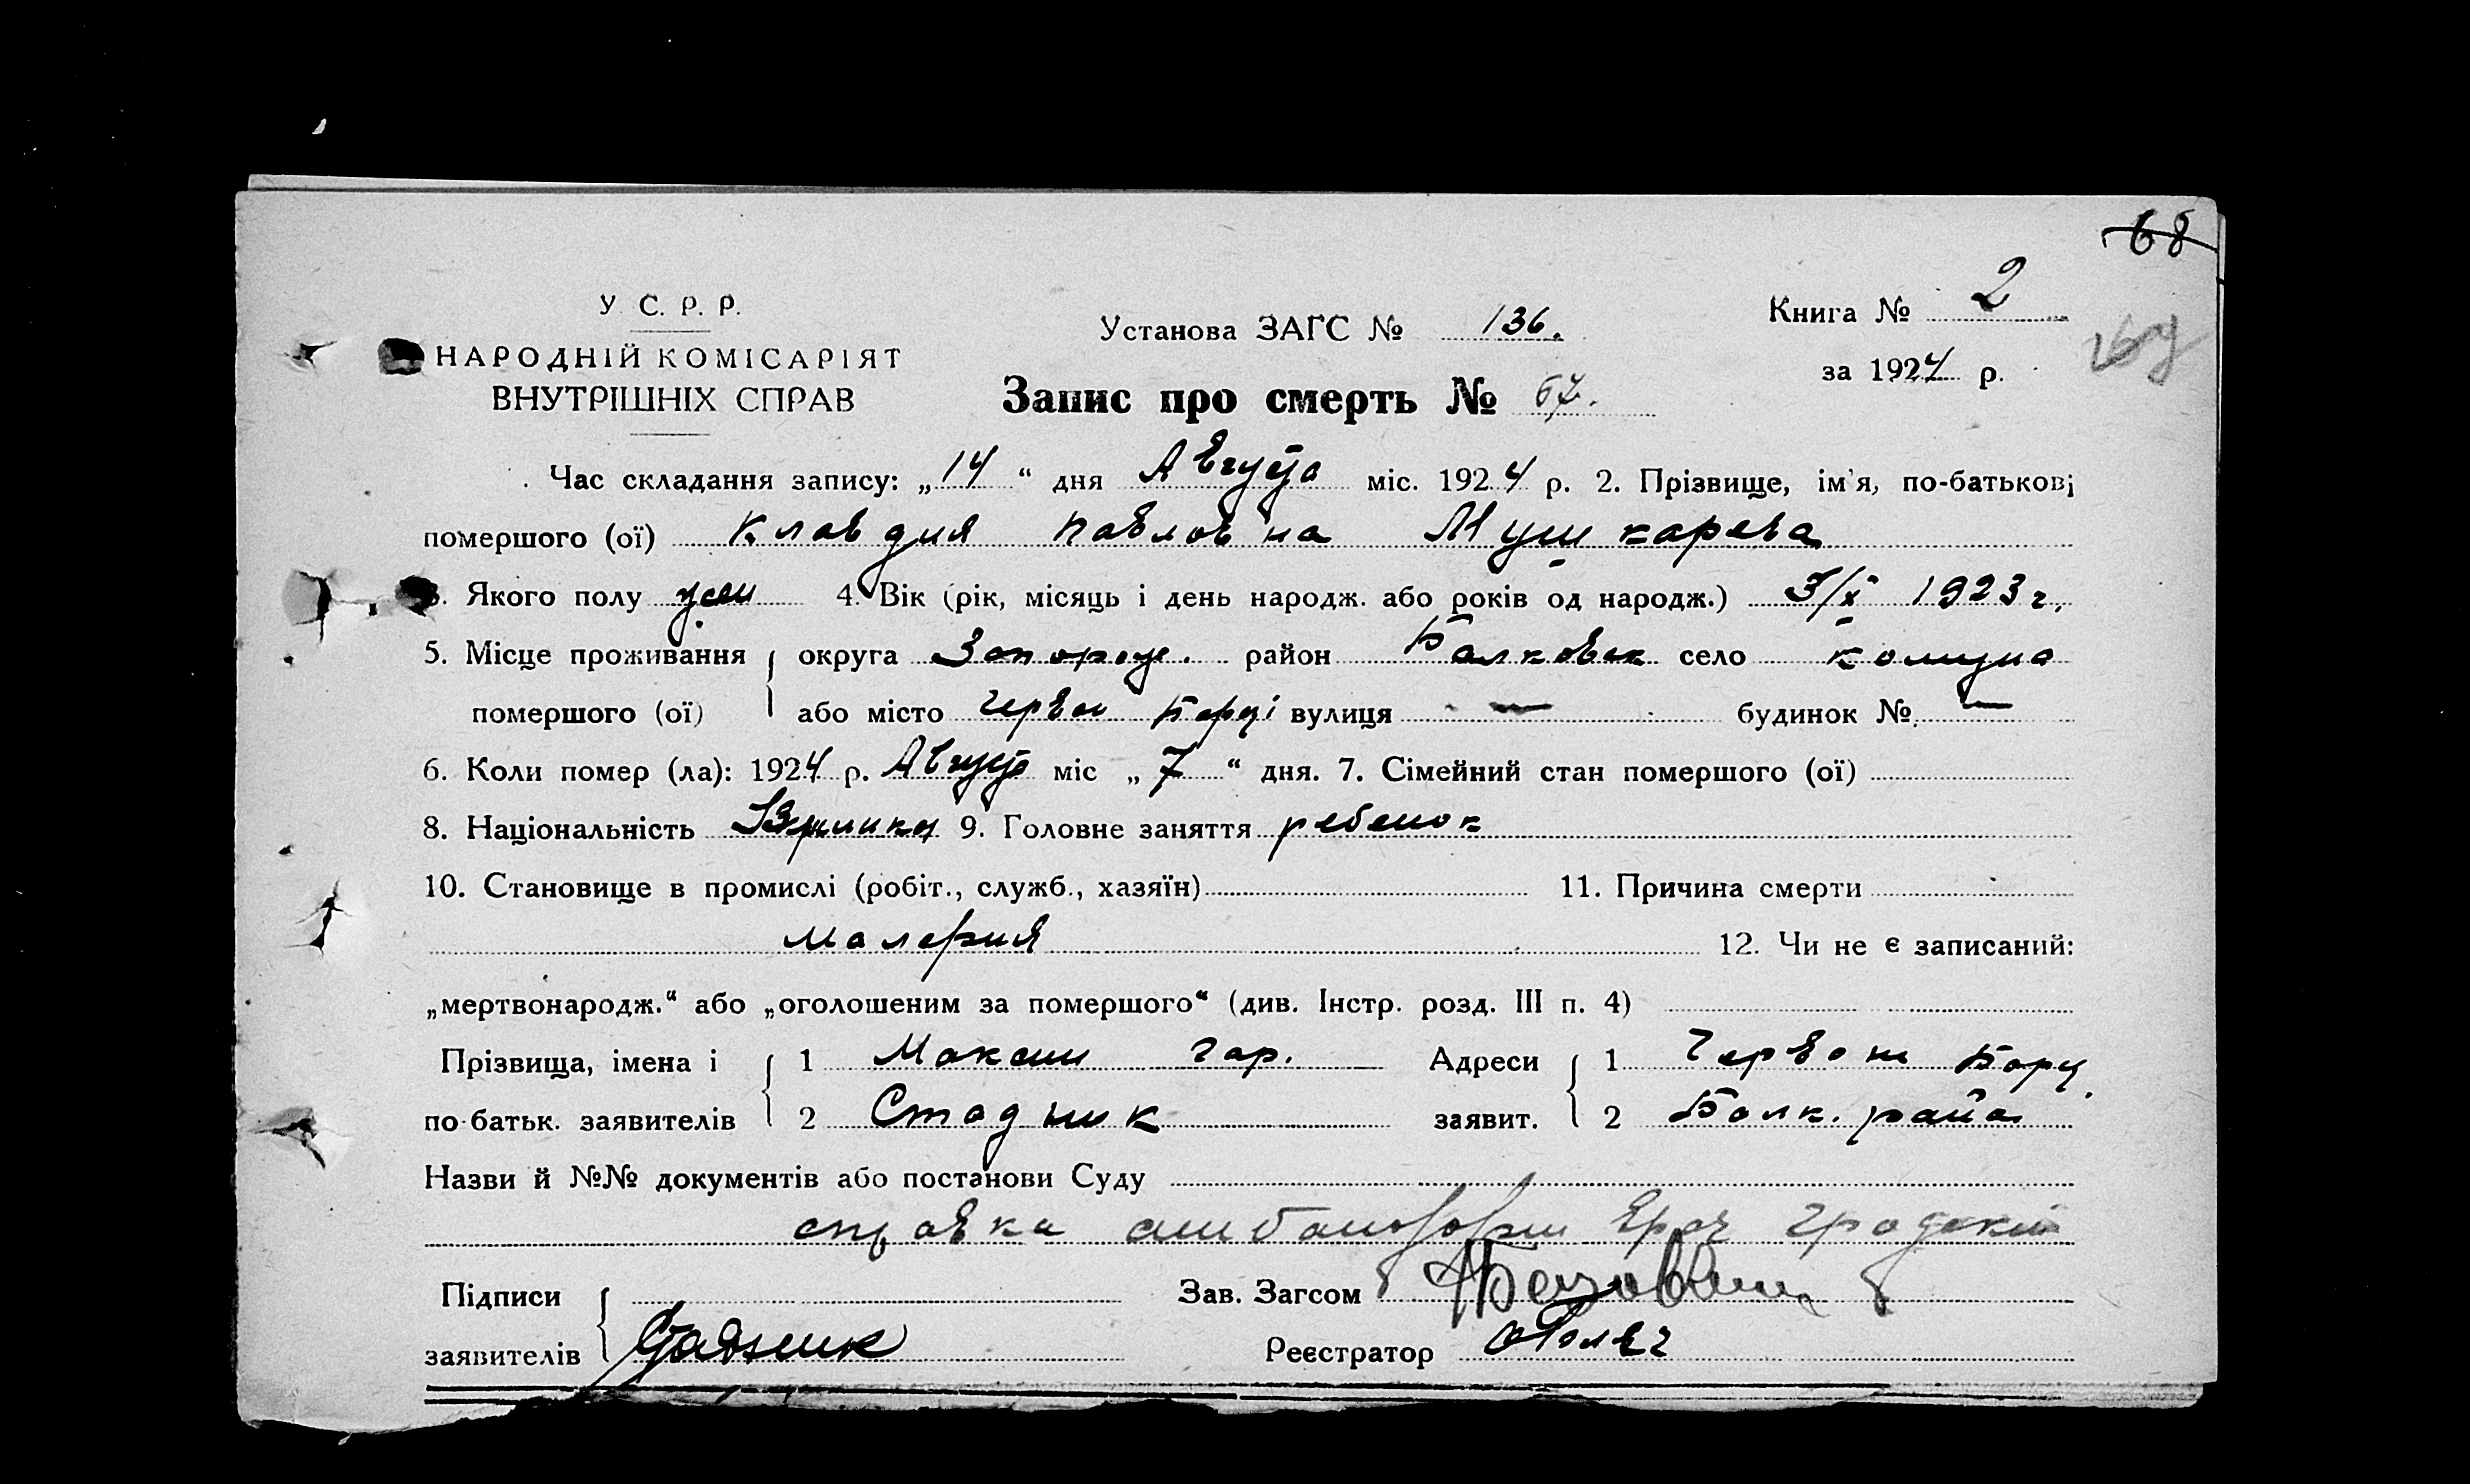 68
У. С. Р. Р.
НАРОДНІЙ КОМІСАРІЯТ
ВНУТРІШНІХ СПРАВ
Установа ЗАГС № 136.
Книга № 2
за 1924 р.
Запис про смерть № 67.
Час складання запису: „14“ дня Августа міс. 1924 р. 2. Прізвище, ім'я, по-батькові
помершого (ої) Клавдия Павловна Мушкарева
3. Якого полу жен 4. Вік (рік, місяць і день народж. або років од народж.) 3/X 1923 г.
5. Місце проживання округа Запорож. район Балковск село комуна
помершого (ої) або місто Червон Борці вулиця — будинок № —
6. Коли помер (ла): 1924 р. Августа міс „7“ дня. 7. Сімейний стан помершого (ої)
8. Національність 9. Головне заняття ребенок
10. Становище в промислі (робіт., служб., хазяїн) 11. Причина смерти
малерия 12. Чи не є записаний:
„мертвонародж.“ або „оголошеним за помершого“ (див. Інстр. розд. III п. 4)
Прізвища, імена і 1 Максим Гар. Адреси 1 Червон Борц.
по-батьк. заявителів 2 Стадник заявит. 2 Балк. район
Назви й №№ документів або постанови Суду
справка амбалатории
Підписи Зав. Загсом
заявителів Стадник Реєстратор